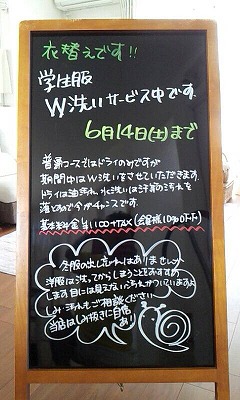 衣替えです!!
学生服
W洗いサービス中です。
6月14日(土)まで
普通コースではドライのみですが
期間中はW洗いをさせていただきます。
ドライは油汚れ、水洗いは汗等の汚れを
落とすので今がチャンスです。
基本料金 1100+TAX (会員様10%OFF)
冬服の出し忘れはありませんか
洋服は洗ってからしまうことをおすすめ
します目には見えない汚れがついていますよ
しみ・汚れもご相談ください
当店はしみ抜きに自信
あり